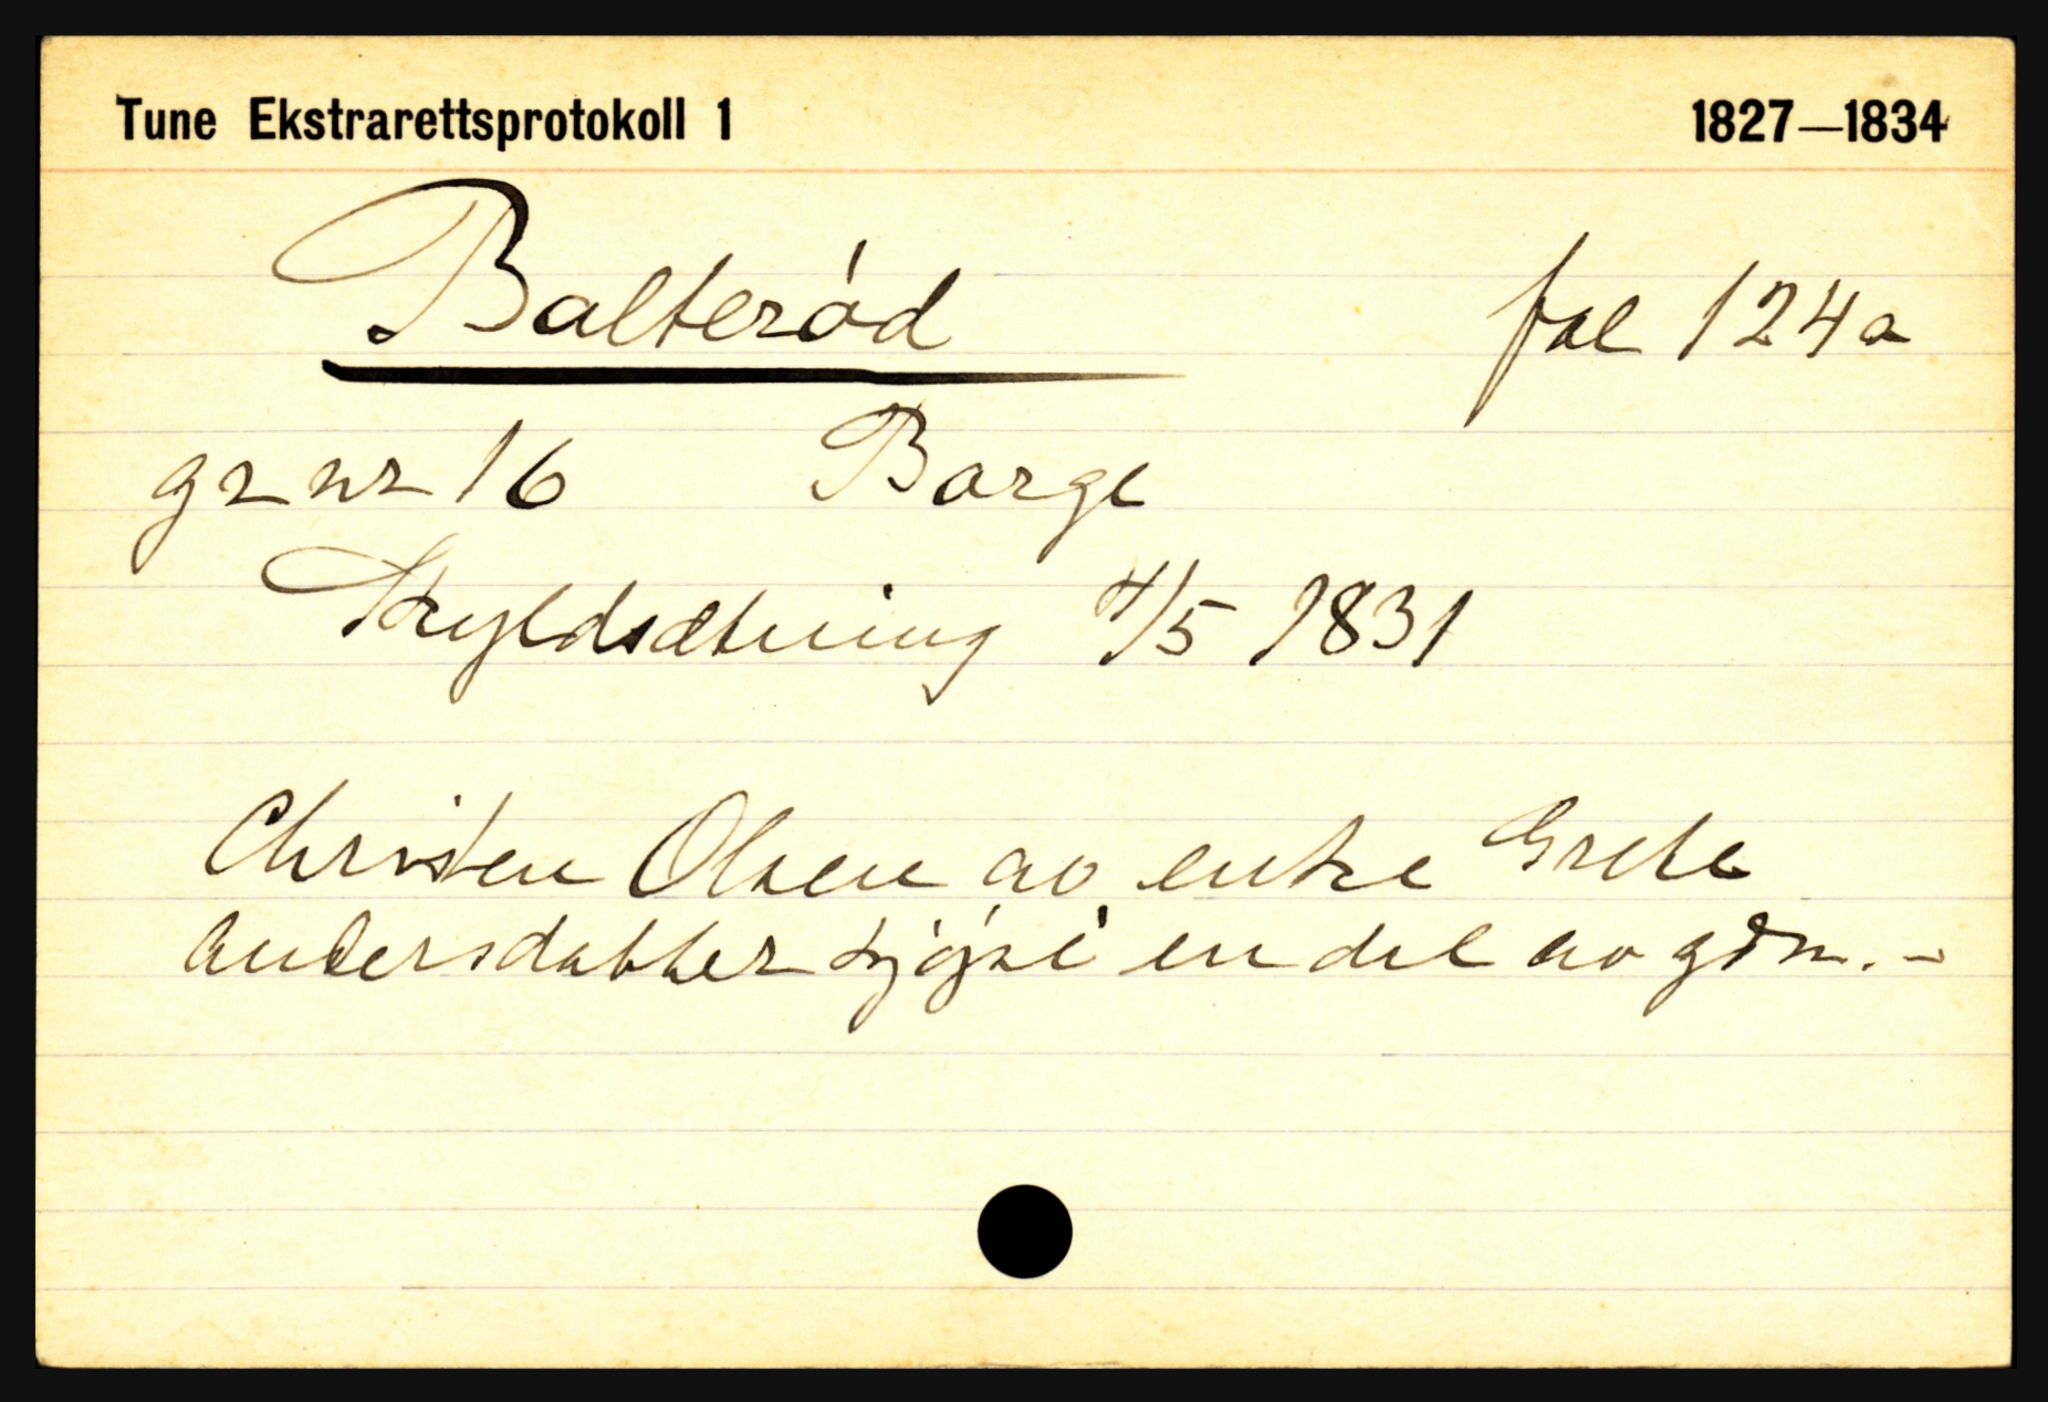 Tune Ekstrarettsprotokoll 1 1827—1834
Balterød fol 124a
gr nr 16 Borge
Skyldsætning 4/5 1831
Christen Olsen av enke Grete
Andersdatter kjøpt en del av gdn. -